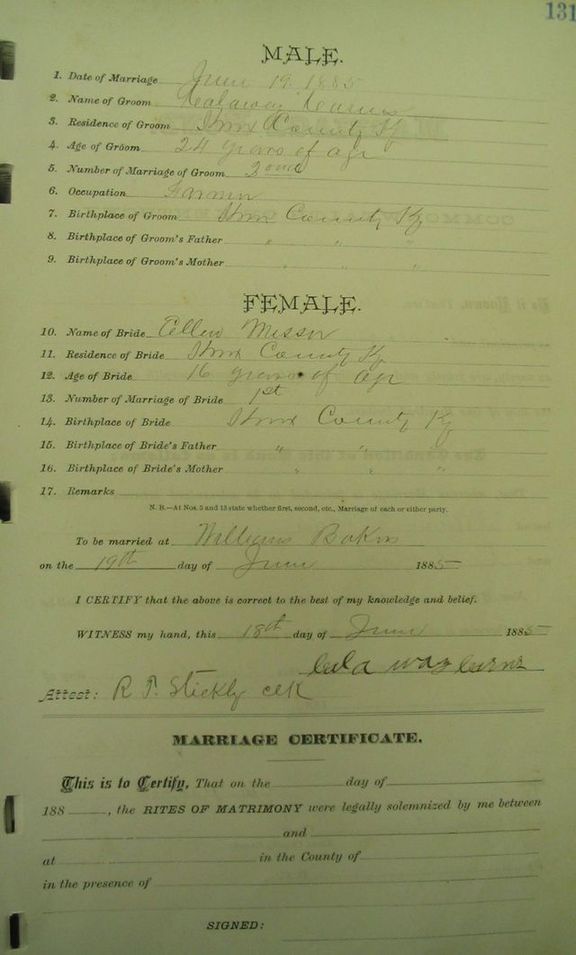 131
MALE.
1. Date of Marriage June 19. 1885
2. Name of Groom
3. Residence of Groom Knox County Ky
4. Age of Groom 24 years of age
5. Number of Marriage of Groom 2ond
6. Occupation Farmer
7. Birthplace of Groom Knox County Ky
8. Birthplace of Groom's Father " " "
9. Birthplace of Groom's Mother " " "
FEMALE.
10. Name of Bride Ellen Messer
11. Residence of Bride Knox County Ky
12. Age of Bride 16 years of age
13. Number of Marriage of Bride 1st
14. Birthplace of Bride Knox County Ky
15. Birthplace of Bride's Father " " "
16. Birthplace of Bride's Mother " " "
17. Remarks
N. B.—At Nos. 5 and 13 state whether first, second, etc., Marriage of each or either party.
To be married at Williams Bakers
on the 19th day of June 1885
I CERTIFY that the above is correct to the best of my knowledge and belief.
WITNESS my hand, this 18th day of June 1885
Attest: R
MARRIAGE CERTIFICATE.
This is to Certify, That on the day of
188 , the RITES OF MATRIMONY were legally solemnized by me between
and
at in the County of
in the presence of
SIGNED: